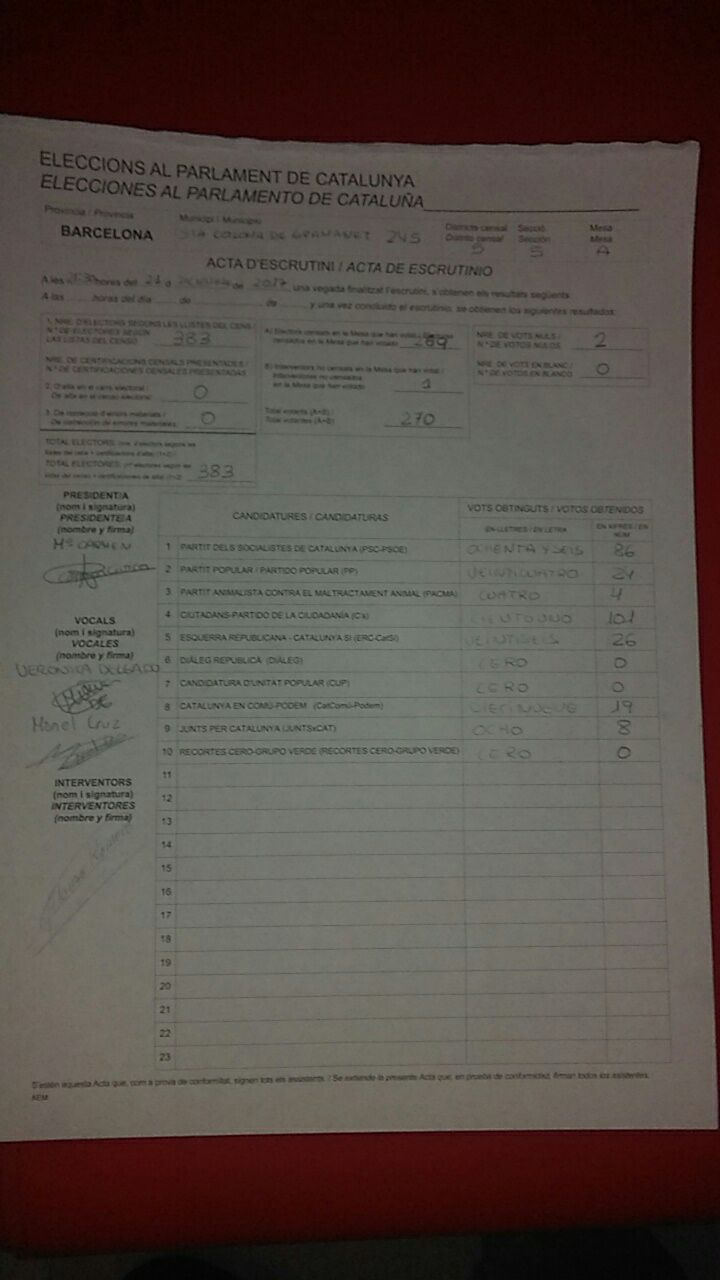 ELECCIONS AL PARLAMENT DE CATALUNYA
ELECCIONES AL PARLAMENTO DE CATALUÑA
Província / Provincia Municipi / Municipio Districte censal Secció Mesa
Distrito censal Sección Mesa
BARCELONA STA COLOMA DE GRAMANET 245 5 5 A
ACTA D'ESCRUTINI / ACTA DE ESCRUTINIO
A les hores del 21 d de 2017, una vegada finalitzat l'escrutini, s'obtenen els resultats següents
A las horas del día de de y una vez concluido el escrutinio, se obtienen los siguientes resultados:
1. NRE. D'ELECTORS SEGONS LES LLISTES DEL CENS /
N.º DE ELECTORES SEGÚN
LAS LISTAS DEL CENSO 383
NRE. DE CERTIFICACIONS CENSALS PRESENTADES /
N.º DE CERTIFICACIONES CENSALES PRESENTADAS
2. D'alta en el cens electoral /
De alta en el censo electoral: 0
3. De correcció d'errors materials /
De corrección de errores materiales: 0
TOTAL ELECTORS
TOTAL ELECTORES 383
A) Electors censats en la Mesa que han votat / Electores
censados en la Mesa que han votado 269
B) Interventors no censats en la Mesa que han votat /
Interventores no censados
en la Mesa que han votado 1
Total votants (A+B) /
Total votantes (A+B) 270
NRE. DE VOTS NULS /
N.º DE VOTOS NULOS 2
NRE. DE VOTS EN BLANC /
N.º DE VOTOS EN BLANCO 0
PRESIDENT/A
(nom i signatura)
PRESIDENTE/A
(nombre y firma)
Mª CARMEN
VOCALS
(nom i signatura)
VOCALES
(nombre y firma)
VERONICA DELGADO
Manel Cruz
INTERVENTORS
(nom i signatura)
INTERVENTORES
(nombre y firma)
CANDIDATURES / CANDIDATURAS VOTS OBTINGUTS / VOTOS OBTENIDOS
EN LLETRES / EN LETRA EN XIFRES / EN NÚM
1 PARTIT DELS SOCIALISTES DE CATALUNYA (PSC-PSOE) OCHENTA Y SEIS 86
2 PARTIT POPULAR / PARTIDO POPULAR (PP) VEINTICUATRO 24
3 PARTIT ANIMALISTA CONTRA EL MALTRACTAMENT ANIMAL (PACMA) CUATRO 4
4 CIUTADANS-PARTIDO DE LA CIUDADANÍA (C's) CIENTO UNO 101
5 ESQUERRA REPUBLICANA - CATALUNYA SÍ (ERC-CatSí) VEINTISEIS 26
6 DIÀLEG REPUBLICÀ (DIÀLEG) CERO 0
7 CANDIDATURA D'UNITAT POPULAR (CUP) CERO 0
8 CATALUNYA EN COMÚ-PODEM (CatComú-Podem) 19
9 JUNTS PER CATALUNYA (JUNTSxCAT) OCHO 8
10 RECORTES CERO-GRUPO VERDE (RECORTES CERO-GRUPO VERDE) CERO 0
11
12
13
14
15
16
17
18
19
20
21
22
23
S'estén aquesta Acta que, com a prova de conformitat, signen tots els assistents. / Se extiende la presente Acta que, en prueba de conformidad, firman todos los asistentes.
AEM